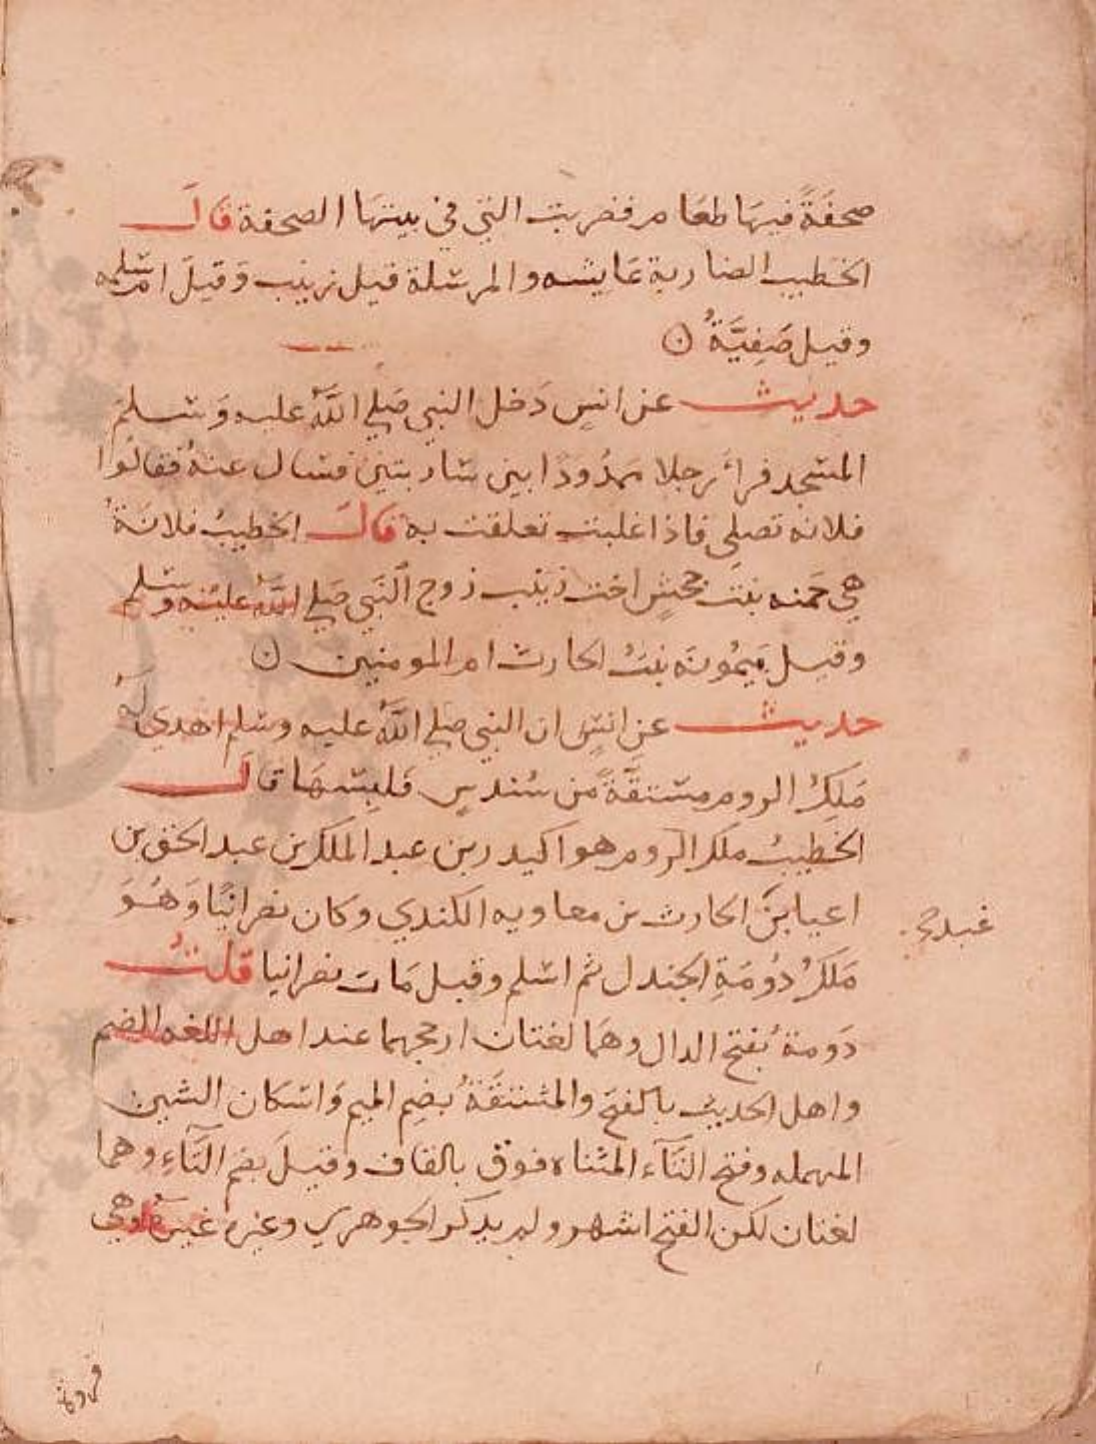 صحفَةً فيهَا طعَام فضربت التي في بيتهَا الصحفة قال
الخطيب الضاربة عَايشه والمرسلة قيل زينب وَقيلَ ام سلمه
وقيل صَفِيَّةُ ۞
حديث عن انسٍ دَخل النبي صَلي اللَّهُ عليه وَسلم
المسجد فراَي رجلا ممدُودًا بين ساريتين فسال عنهُ فقالوُا
فلانه تصلي فاذا غلبت تعلقت به قَالَ الخطيبُ فلانَةُ
هي حَمنه بنت جحشٍ اخت زينب زوج النَّبي صَلي اللَّهُ عليْه وسلم
وقيل مَيمُونَه بنتُ الحارث ام المومنين ۞
حديث عن انسٍ ان النبي صلي اللَّهُ عليه وسلم اهدي لَهُ
مَلِكُ الروم مستقَةً من سُندسٍ فلبِسَهَا قالَ
الخطيبُ ملك الروم هو اكيدر بن عبد الملك بن عبد الحق بن
اعيا بنَ الحارث بن معاويه الكندي وكان نصرانيًا وَهُوَ
مَلكُ دُومَةِ الجندل ثم اسلم وقيل مَات نصرانيا قلتُ
دَومةُ بفتح الدال وهَما لغتان ارجحهما عند اهل اللغه الضم
واهل الحديث بالفتح والمستقَةُ بضم الميم وَاسكان السين
المهمله وفتح التَّآء المثناه فوق بالقاف وقيلَ بضم التَّآءِ وهما
لغتان لكن الفتح اشهر ولم يذكر الجوهري وغيره غيرهُ وهي